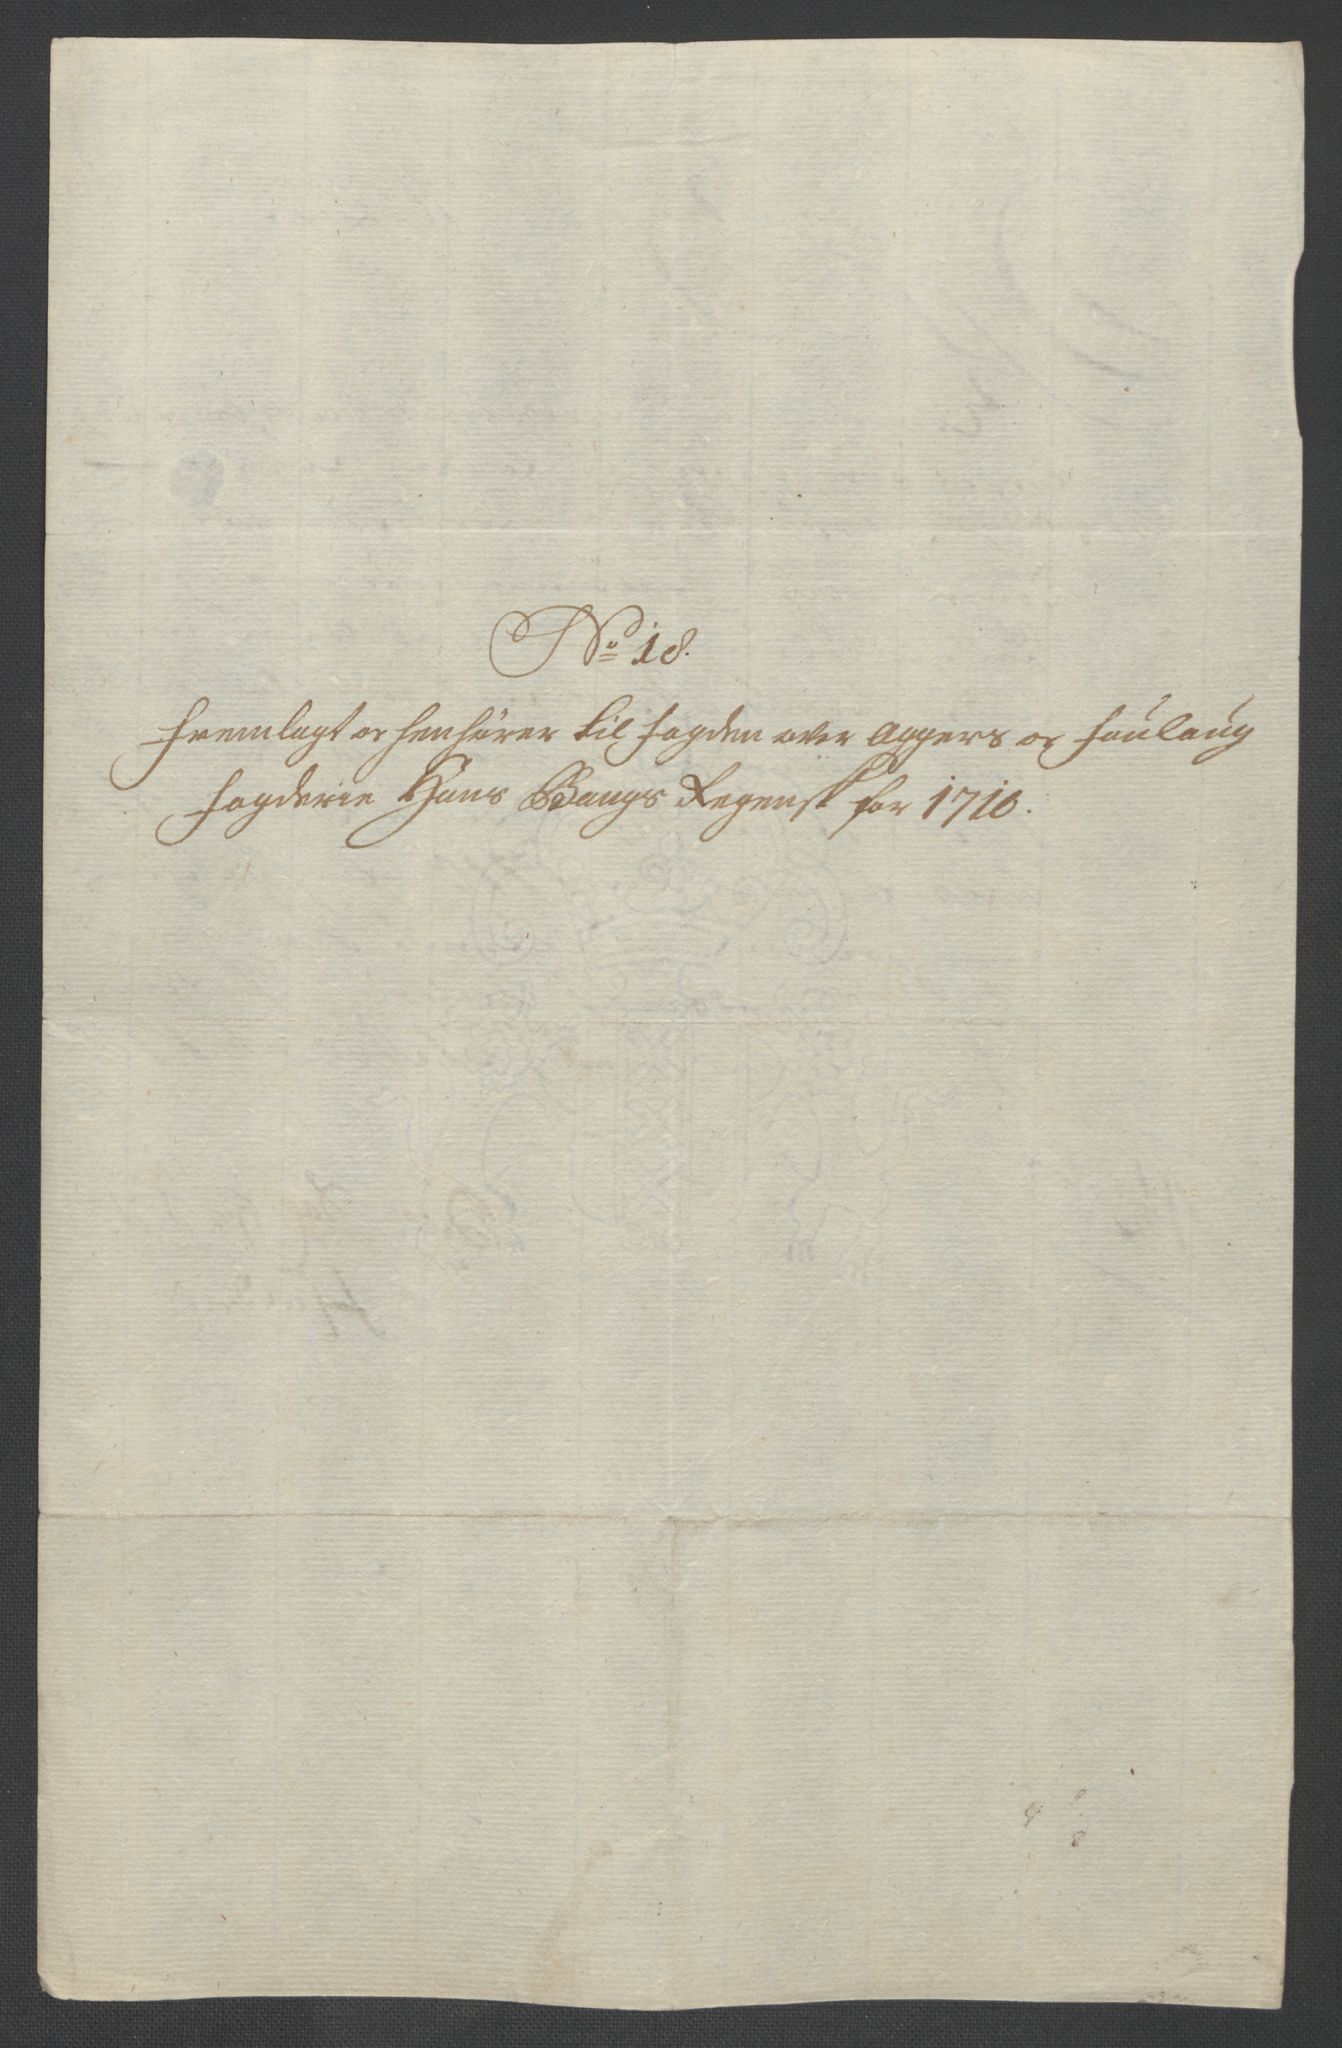 No 18.
Fremlagt og henhører til fogden over Aggers og follaug
fogderie Hans Bangs Regensk for 1710.